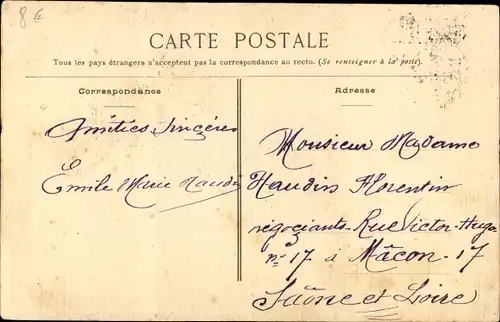 8 €
CARTE POSTALE
Tous les pays étrangers n'acceptent pas la correspondance au recto. (Se renseigner à la poste).
Correspondance
Amitiés Sincères
Emile Marie Naudin
Adresse
Monsieur Madame
Naudin Florentin
négociants Rue Victor-Hugo
n° 17 à Mâcon - 17
Saône et Loire